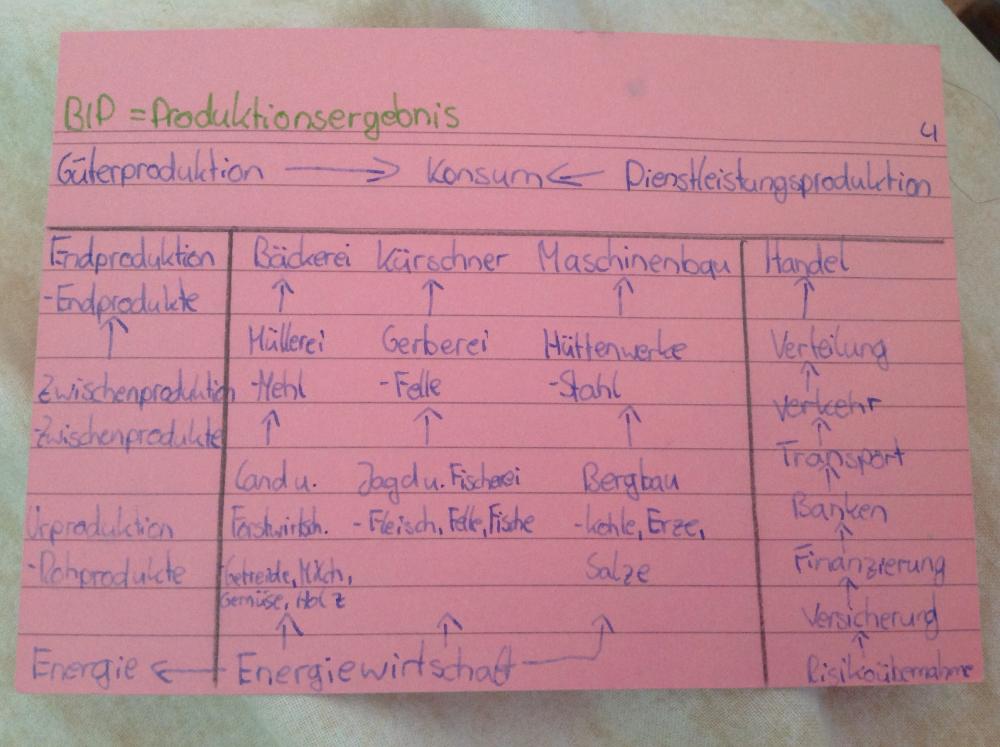 BIP = Produktionsergebnis
4
Güterproduktion → Konsum ← Dienstleistungsproduktion
Endproduktion Bäckerei Kürschner Maschinenbau Handel
-Endprodukte ↑ ↑ ↑ ↑
↑ Müllerei Gerberei Hüttenwerke Verteilung
Zwischenproduktion -Mehl -Felle -Stahl ↑
↑ ↑ ↑ Verkehr
-Zwischenprodukte ↑
Transport
Land u. Jagd u. Fischerei Bergbau ↑
Urproduktion Forstwirtsch. -Fleisch, Felle, Fische -Kohle, Erze, Banken
↑
-Rohprodukte Getreide, Milch, Salze Finanzierung
Gemüse, Holz ↑
↑ ↑ ↑ Versicherung
↑
Energie ← Energiewirtschaft Risikoübernahme